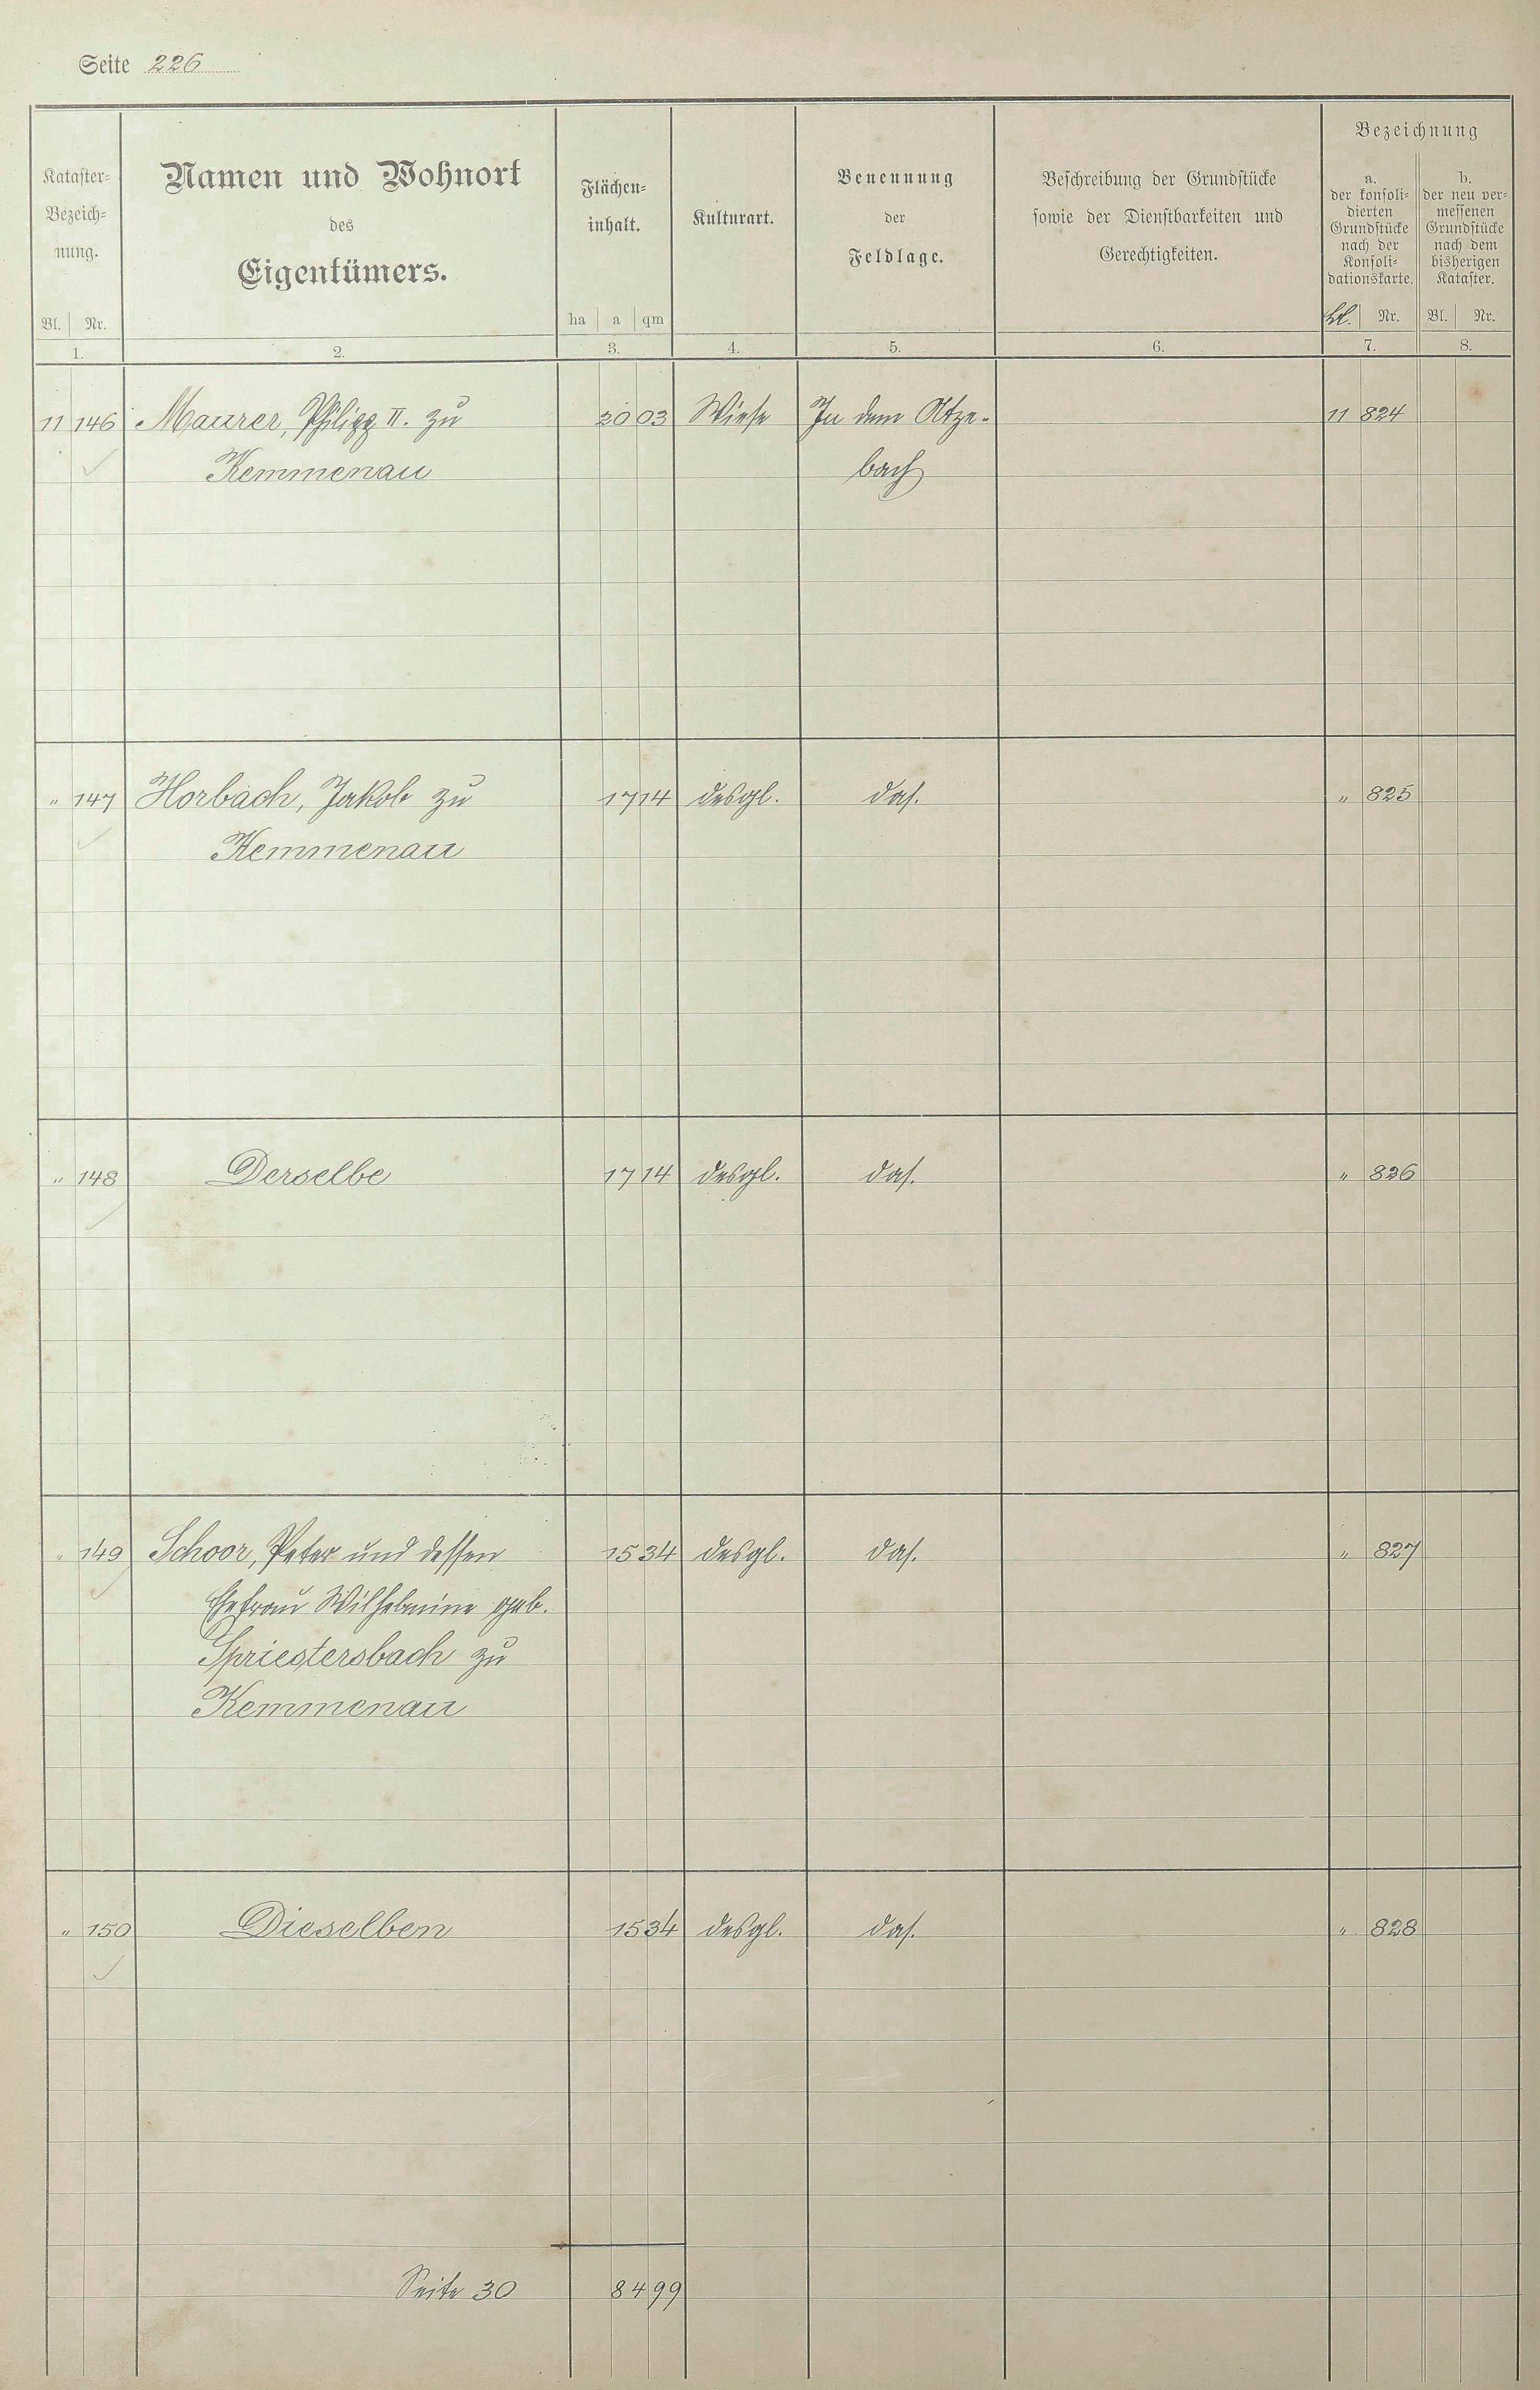 Seite 226
Kataster=
Bezeich=
nung.
Bl. Nr.
1.
Namen und Wohnort
des
Eigentümers.
2.
Flächen=
inhalt.
ha a qm
3.
Kulturart.
4.
Benennung
der
Feldlage.
5.
Beschreibung der Grundstücke
sowie der Dienstbarkeiten und
Gerechtigkeiten.
6.
Bezeichnung
a.
der konsoli=
dierten
Grundstücke
nach der
Konsoli=
dationskarte.
Bl. Nr.
7.
b.
der neu ver=
messenen
Grundstücke
nach dem
bisherigen
Kataster.
Bl. Nr.
8.
11 146 Maurer, Philipp II. zu 20 03 Wiese In dem Atze- 11 824
Kemmenau bach
" 147 Horbach, Jakob zu 17 14 desgl. das. " 825
Kemmenau
" 148 Derselbe 17 14 desgl. das. " 826
" 149 Schoor, Peter und dessen 15 34 desgl. das. " 827
Ehefrau Wilhelmine geb.
Spriestersbach zu
Kemmenau
" 150 Dieselben 15 34 desgl. das. " 828
Seite 30 84 99